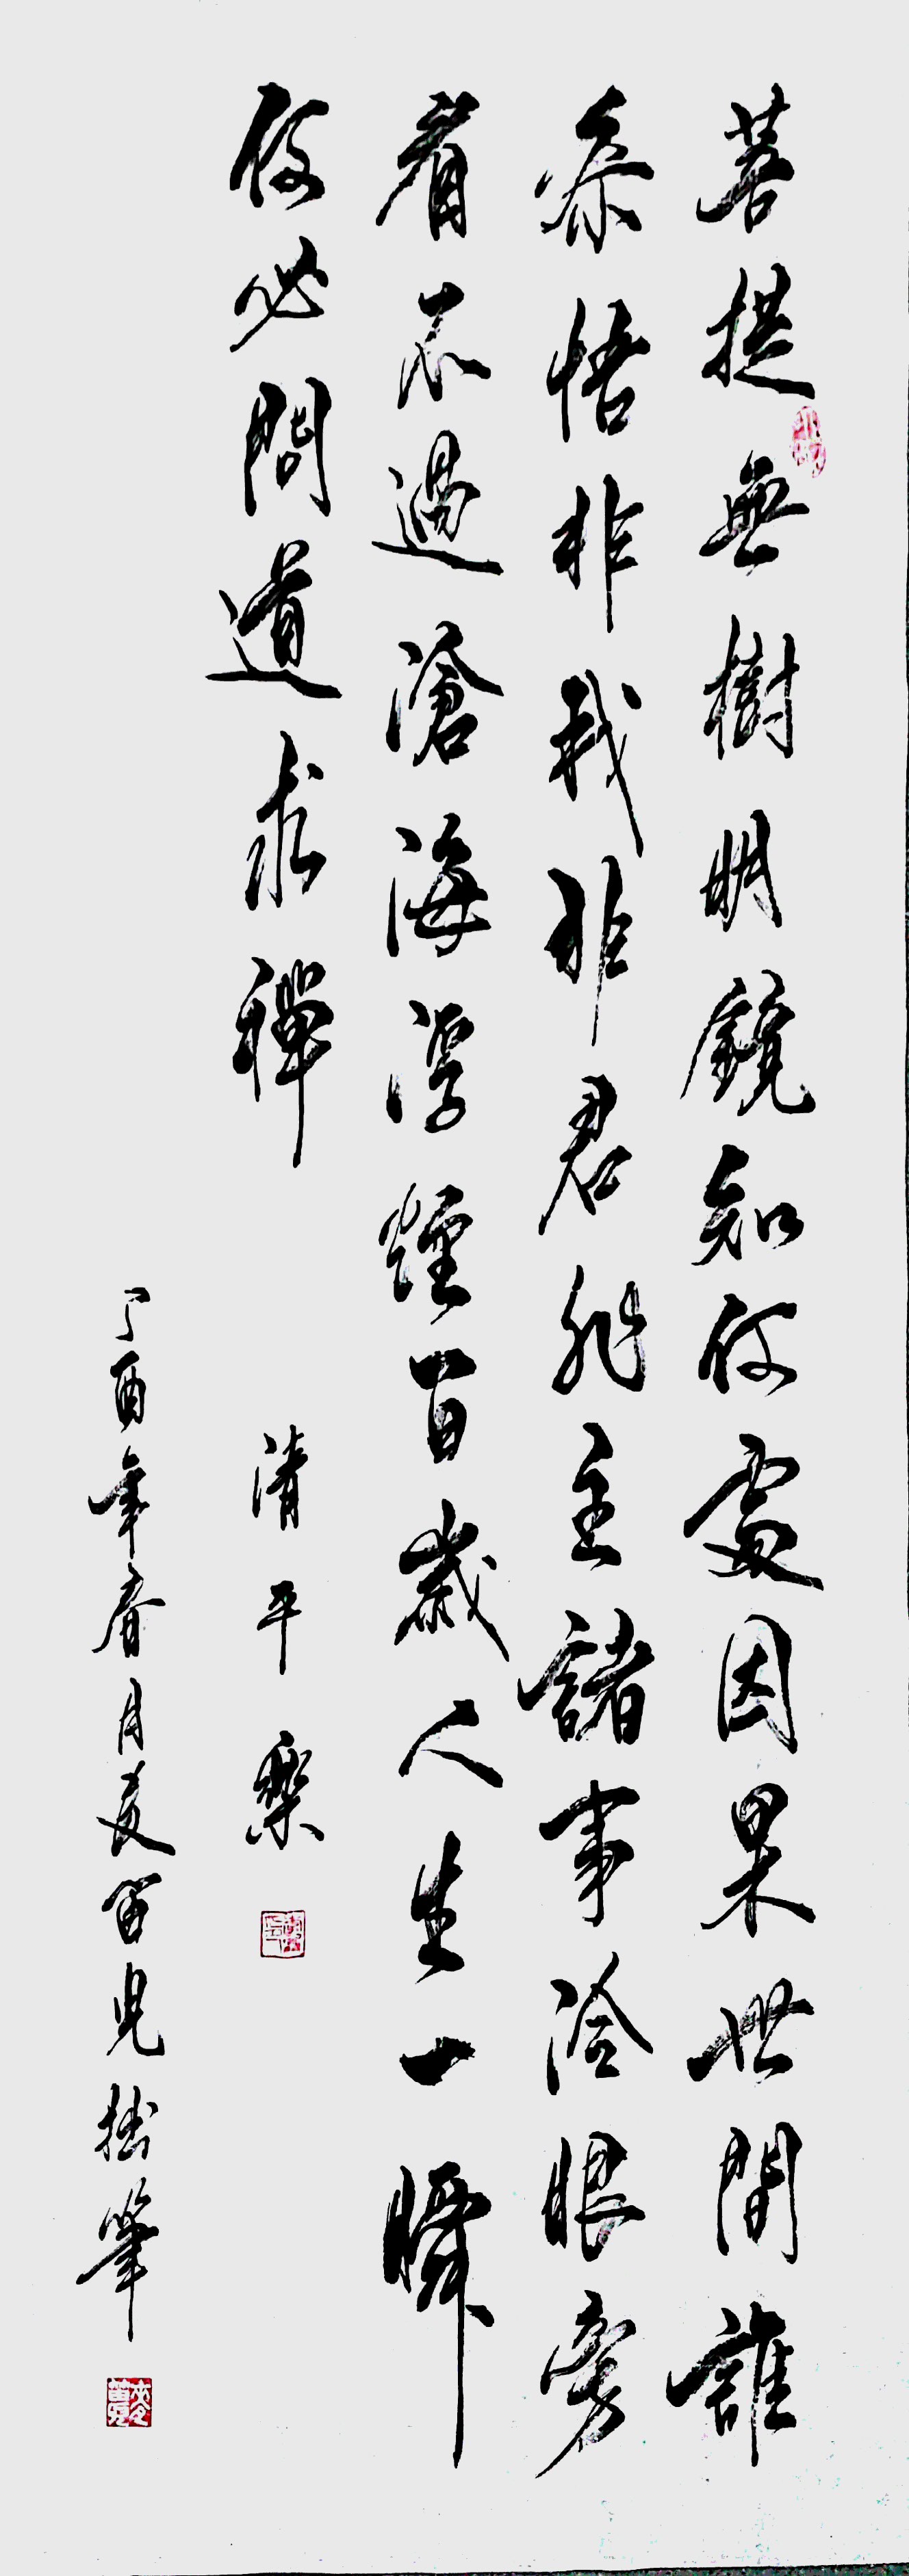 菩提無樹明鏡知何處因果世間誰
參悟非我非君非主諸事冷眼旁
看不過滄海浮煙百歲人生一瞬
何必問道求禪
清平樂
丁酉年春月麦苗兒拙筆